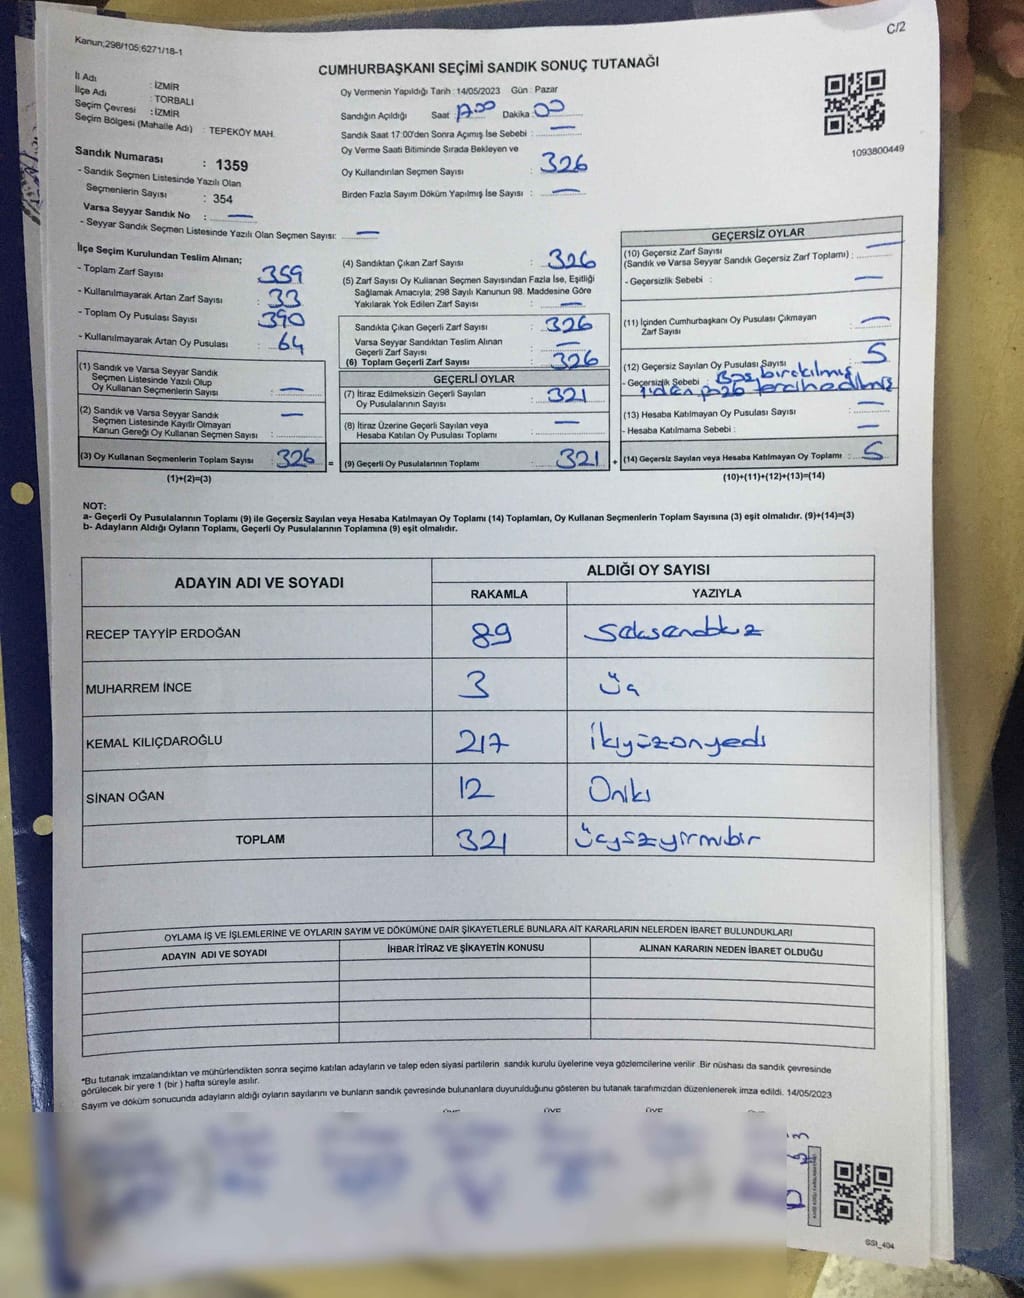 Kanun;298/105;6271/18-1
C/2
CUMHURBAŞKANI SEÇİMİ SANDIK SONUÇ TUTANAĞI
İl Adı : İZMİR
İlçe Adı : TORBALI
Seçim Çevresi : İZMİR
Seçim Bölgesi (Mahalle Adı) : TEPEKÖY MAH.
Sandık Numarası : 1359
- Sandık Seçmen Listesinde Yazılı Olan
Seçmenlerin Sayısı : 354
Varsa Seyyar Sandık No : —
- Seyyar Sandık Seçmen Listesinde Yazılı Olan Seçmen Sayısı: —
Oy Vermenin Yapıldığı Tarih : 14/05/2023 Gün : Pazar
Sandığın Açıldığı Saat 17.00 Dakika : 00
Sandık Saat 17:00'den Sonra Açımış İse Sebebi : —
Oy Verme Saati Bitiminde Sırada Bekleyen ve
Oy Kullandırılan Seçmen Sayısı : 326
Birden Fazla Sayım Döküm Yapılmış İse Sayısı : —
1093800449
İlçe Seçim Kurulundan Teslim Alınan;
- Toplam Zarf Sayısı : 359
- Kullanılmayarak Artan Zarf Sayısı : 33
- Toplam Oy Pusulası Sayısı : 390
- Kullanılmayarak Artan Oy Pusulası : 64
(1) Sandık ve Varsa Seyyar Sandık
Seçmen Listesinde Yazılı Olup
Oy Kullanan Seçmenlerin Sayısı : —
(2) Sandık ve Varsa Seyyar Sandık
Seçmen Listesinde Kayıtlı Olmayan
Kanun Gereği Oy Kullanan Seçmen Sayısı : —
(3) Oy Kullanan Seçmenlerin Toplam Sayısı : 326 =
(1)+(2)=(3)
(4) Sandıktan Çıkan Zarf Sayısı : 326
(5) Zarf Sayısı Oy Kullanan Seçmen Sayısından Fazla İse, Eşitliği
Sağlamak Amacıyla; 298 Sayılı Kanunun 98. Maddesine Göre
Yakılarak Yok Edilen Zarf Sayısı : —
Sandıkta Çıkan Geçerli Zarf Sayısı : 326
Varsa Seyyar Sandıktan Teslim Alınan
Geçerli Zarf Sayısı : —
(6) Toplam Geçerli Zarf Sayısı : 326
GEÇERLİ OYLAR
(7) İtiraz Edilmeksizin Geçerli Sayılan
Oy Pusulalarının Sayısı : 321
(8) İtiraz Üzerine Geçerli Sayılan veya
Hesaba Katılan Oy Pusulası Toplamı : —
(9) Geçerli Oy Pusulalarının Toplamı : 321 +
GEÇERSİZ OYLAR
(10) Geçersiz Zarf Sayısı
(Sandık ve Varsa Seyyar Sandık Geçersiz Zarf Toplamı) : —
- Geçersizlik Sebebi : —
(11) İçinden Cumhurbaşkanı Oy Pusulası Çıkmayan
Zarf Sayısı : —
(12) Geçersiz Sayılan Oy Pusulası Sayısı : 5
- Geçersizlik Sebebi : Boş bırakılmış
1'den fazla tercih edilmiş
(13) Hesaba Katılmayan Oy Pusulası Sayısı : —
- Hesaba Katılmama Sebebi : —
(14) Geçersiz Sayılan veya Hesaba Katılmayan Oy Toplamı : 5
(10)+(11)+(12)+(13)=(14)
NOT:
a- Geçerli Oy Pusulalarının Toplamı (9) ile Geçersiz Sayılan veya Hesaba Katılmayan Oy Toplamı (14) Toplamları, Oy Kullanan Seçmenlerin Toplam Sayısına (3) eşit olmalıdır. (9)+(14)=(3)
b- Adayların Aldığı Oyların Toplamı, Geçerli Oy Pusulalarının Toplamına (9) eşit olmalıdır.
ADAYIN ADI VE SOYADI ALDIĞI OY SAYISI
RAKAMLA YAZIYLA
RECEP TAYYİP ERDOĞAN 89 Seksendokuz
MUHARREM İNCE 3 Üç
KEMAL KILIÇDAROĞLU 217 İkiyüzonyedi
SİNAN OĞAN 12 Oniki
TOPLAM 321 Üçyüzyirmibir
OYLAMA İŞ VE İŞLEMLERİNE VE OYLARIN SAYIM VE DÖKÜMÜNE DAİR ŞİKAYETLERLE BUNLARA AİT KARARLARIN NELERDEN İBARET BULUNDUKLARI
ADAYIN ADI VE SOYADI İHBAR İTİRAZ VE ŞİKAYETİN KONUSU ALINAN KARARIN NEDEN İBARET OLDUĞU
*Bu tutanak imzalandıktan ve mühürlendikten sonra seçime katılan adayların ve talep eden siyasi partilerin sandık kurulu üyelerine veya gözlemcilerine verilir. Bir nüshası da sandık çevresinde
görülecek bir yere 1 (bir ) hafta süreyle asılır.
Sayım ve döküm sonucunda adayların aldığı oyların sayılarını ve bunların sandık çevresinde bulunanlara duyurulduğunu gösteren bu tutanak tarafımızdan düzenlenerek imza edildi. 14/05/2023
ÜYE ÜYE ÜYE
SSt_404